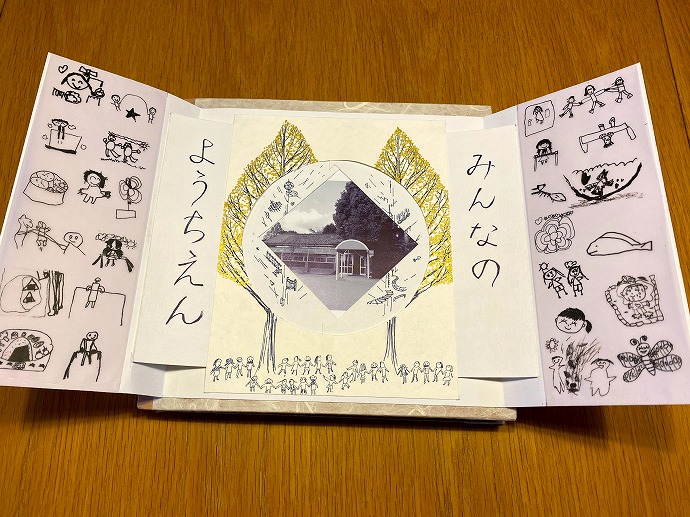 みんなの
ようちえん